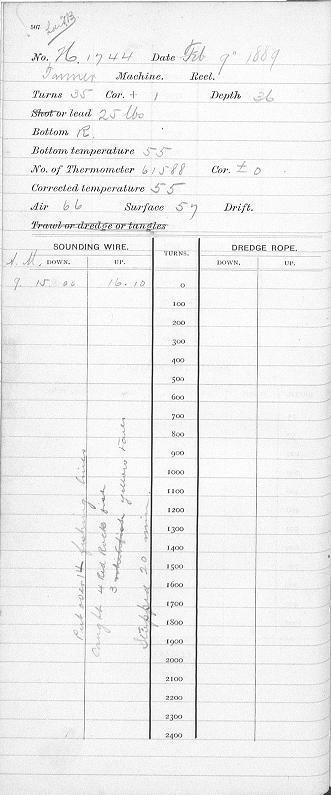 507
No. H. 1744 Date Feb 9" 1889
Tanner Machine. Reel.
Turns 35 Cor. + 1 Depth 36
Shot or lead 25 lbs
Bottom R.
Bottom temperature 55
No. of Thermometer 61588 Cor. ± 0
Corrected temperature 55
Air 66 Surface 57 Drift.
Trawl or dredge or tangles
SOUNDING WIRE. TURNS. DREDGE ROPE.
A. M. DOWN. UP. DOWN. UP.
9. 15. 00 16. 10 0
100
200
300
400
500
600
700
800
900
1000
1100
1200
1300
1400
1500
1600
1700
1800
1900
2000
2100
2200
2300
2400
Put over 14 fishing lines
Caught 4 Red Rock fish
3 yellow
Stopped 20 min.